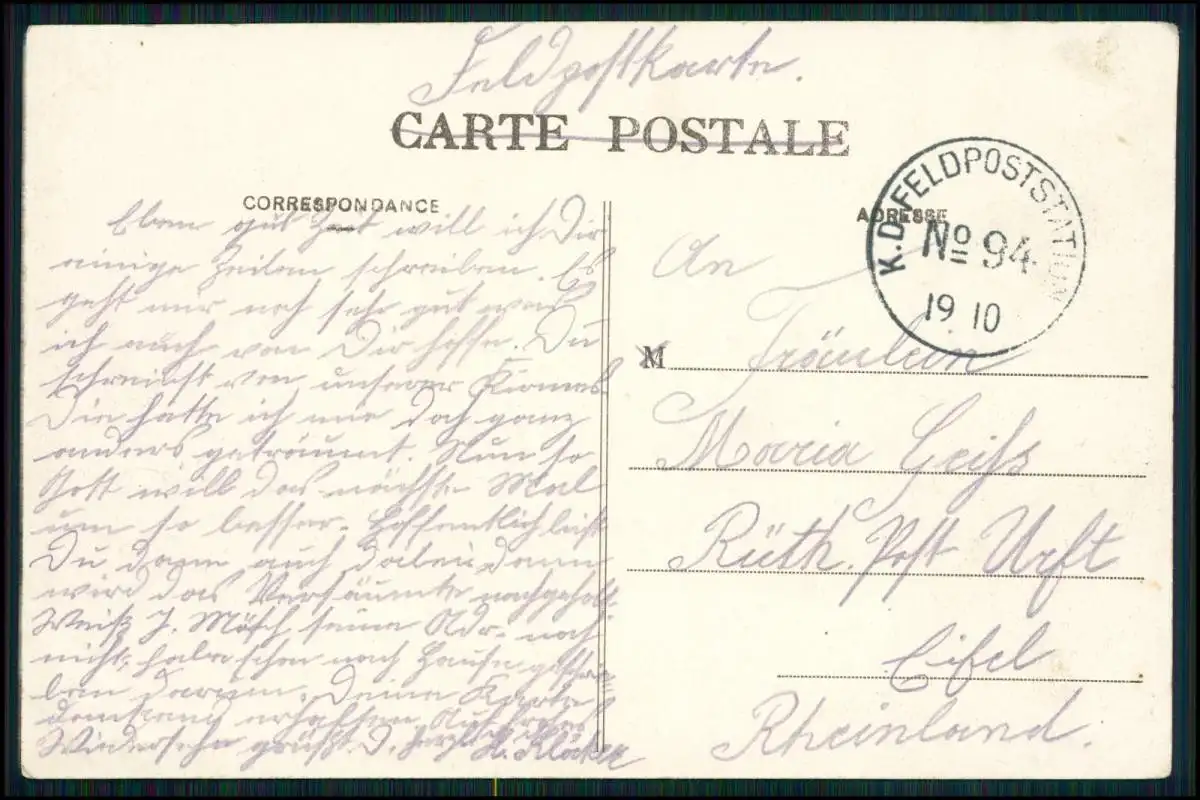 Feldpostkarte.
CARTE POSTALE
CORRESPONDANCE
Eben gut Zeit will ich Dir
einige Zeilen schreiben. Es
geht mir noch sehr gut was
ich auch von Dir hoffe. Du
schreibst von unserer Kirmes.
Die hätte ich mir doch ganz
anders geträumt. Nun so
Gott will das nächste Mal
um so besser. Hoffentlich bist
Du dann auch dabei, dann
wird das Versäumte nachgeholt.
Weiß J. Mösch seine Adr. noch
nicht, habe schon nach Hause geschrie=
ben darum. Deine Karte
dankend erhalten. Auf frohes
Wiedersehn grüßt D. herzl. H.
ADRESSE
K.D. FELDPOSTSTATION
No 94
19 10
An
M
Fräulein
Maria Geiss
Rüth. Post Urft
Eifel
Rheinland.